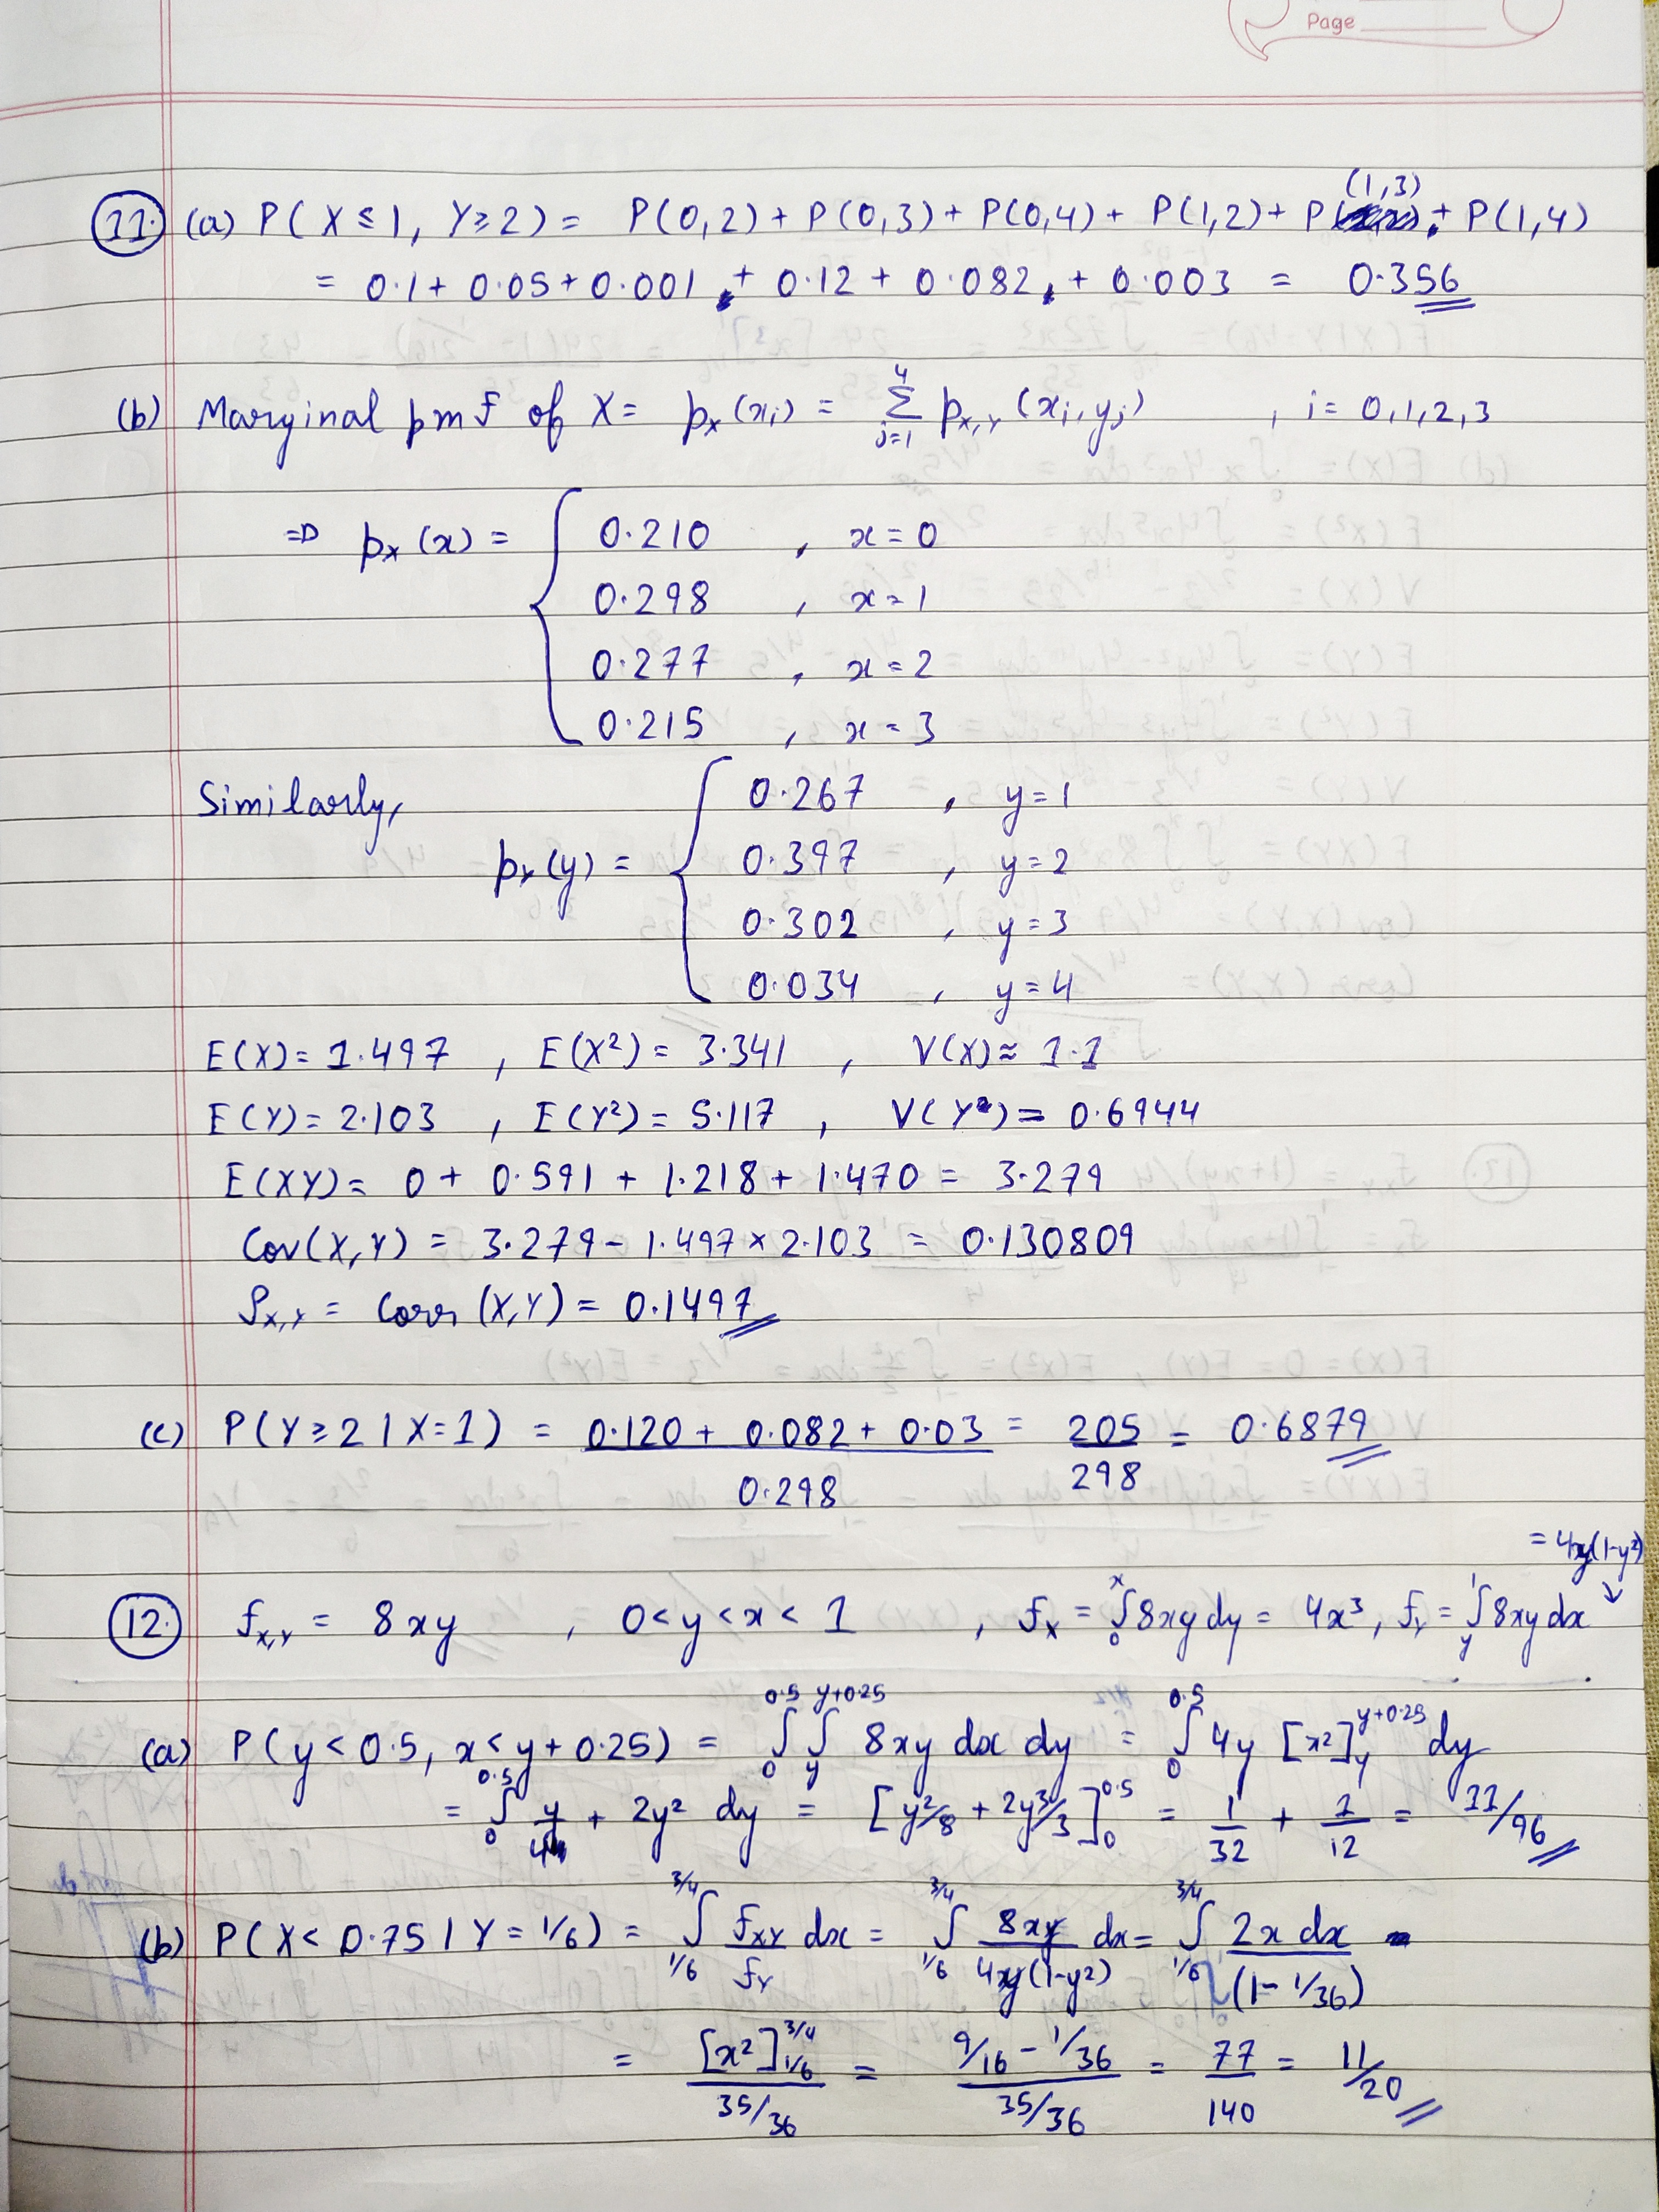 Page
11. (a) P(X ≤ 1, Y ≥ 2) = P(0,2) + P(0,3) + P(0,4) + P(1,2) + P(1,3) + P(1,4)
= 0.1 + 0.05 + 0.001 + 0.12 + 0.082 + 0.003 = 0.356
(b) Marginal pmf of X = p_X(x_i) = Σ_{j=1}^{4} p_{X,Y}(x_i, y_j) , i = 0,1,2,3
⇒ p_X(x) = { 0.210 , x = 0
0.298 , x = 1
0.277 , x = 2
0.215 , x = 3
Similarly,
p_Y(y) = { 0.267 , y = 1
0.397 , y = 2
0.302 , y = 3
0.034 , y = 4
E(X) = 1.497 , E(X²) = 3.341 , V(X) ≈ 1.1
E(Y) = 2.103 , E(Y²) = 5.117 , V(Y) = 0.6944
E(XY) = 0 + 0.591 + 1.218 + 1.470 = 3.279
Cov(X,Y) = 3.279 - 1.497 × 2.103 = 0.130809
ρ_{X,Y} = Corr (X,Y) = 0.1497
(c) P(Y ≥ 2 | X = 1) = (0.120 + 0.082 + 0.03)/0.298 = 205/298 = 0.6879
= 4y(1-y²)
12. f_{X,Y} = 8xy , 0 < y < x < 1 , f_X = ∫_0^x 8xy dy = 4x³, f_Y = ∫_y^1 8xy dx ↓
(a) P(y < 0.5, x < y + 0.25) = ∫_0^{0.5} ∫_y^{y+0.25} 8xy dx dy = ∫_0^{0.5} 4y [x²]_y^{y+0.25} dy
= ∫_0^{0.5} y/4 + 2y² dy = [y²/8 + 2y³/3]_0^{0.5} = 1/32 + 1/12 = 11/96
(b) P(X < 0.75 | Y = 1/6) = ∫_{1/6}^{3/4} f_{XY}/f_Y dx = ∫_{1/6}^{3/4} 8xy/4y(1-y²) dx = ∫_{1/6}^{3/4} 2x dx/(1 - 1/36)
= [x²]_{1/6}^{3/4}/(35/36) = (9/16 - 1/36)/(35/36) = 77/140 = 11/20